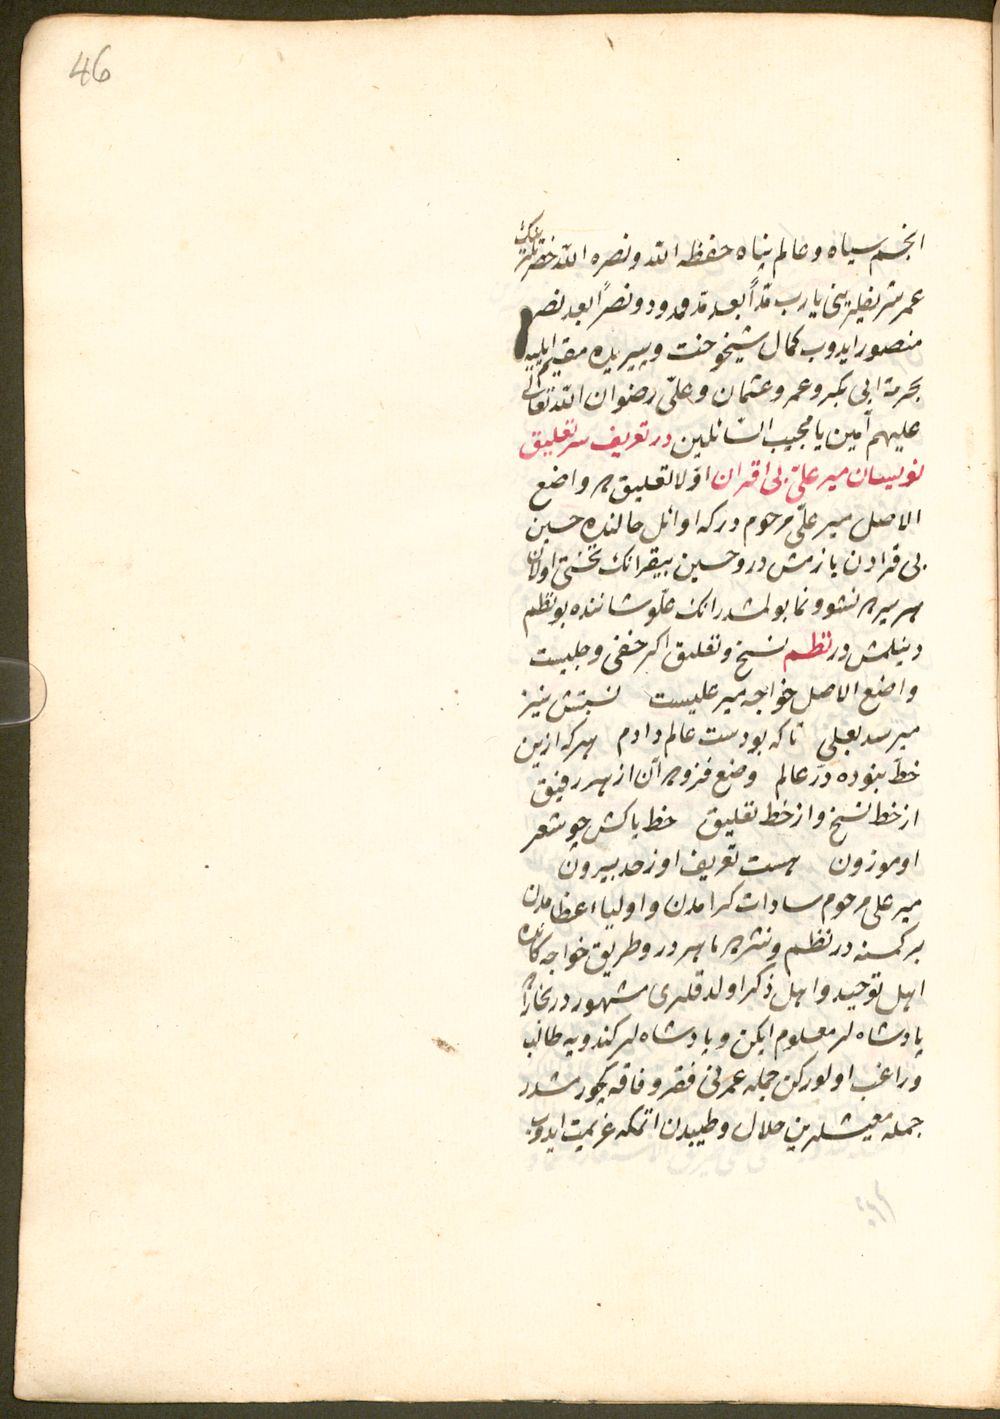 46
انجم سپاه و عالم پناه حفظه الله و نصره الله حضرتلرینك
عمر شریفلرینی یارب مداً بعد مد ممدود و نصراً بعد نصر
منصور ایدوب کمال شیخوخت و پیریده مقیم ایلیه
بحرمة ابی بکر و عمر و عثمان و علی رضوان الله تعالی
علیهم آمین یا مجیب السائلین در تعریف سر تعلیق
نویسان میر علی بی اقران اولا تعلیقده واضع
الاصل میر علی مرحوم در که اوائل حالنده حسین
بی قرادن یازمش در و حسین بیقرانك تختی اولان
هریده نشو و نما بولمشدر انك علو شاننده بو نظم
دینلمش در نظم نسخ و تعلیق اکر خفی و جلیست
واضع الاصل خواجه میر علیست نسبتش نیز
میرسد بعلی تا که بودست عالم و ادم هرکه ازین
خط نبوده در عالم وضع فرمود آن از هر رفیق
از خط نسخ و از خط تعلیق خط پاکش چو شعر
او موزون هست تعریف او ز حد بیرون
میر علی مرحوم سادات کرامدن و اولیاء عظامدن
بر کمسنه در نظم و نثرده ماهر در و طریق خواجه کانده
اهل توحید و اهل ذکر اولدقلری مشهور در بخاراده
پادشاه لر معلوم ایکن و پادشاه لر کندویه طالب
و راغب اولورکن جمله عمرنی فقر و فاقه کچورمشدر
جمله معیشتلرین حلال و طیبدن اتمکه عزیمت ایدوب